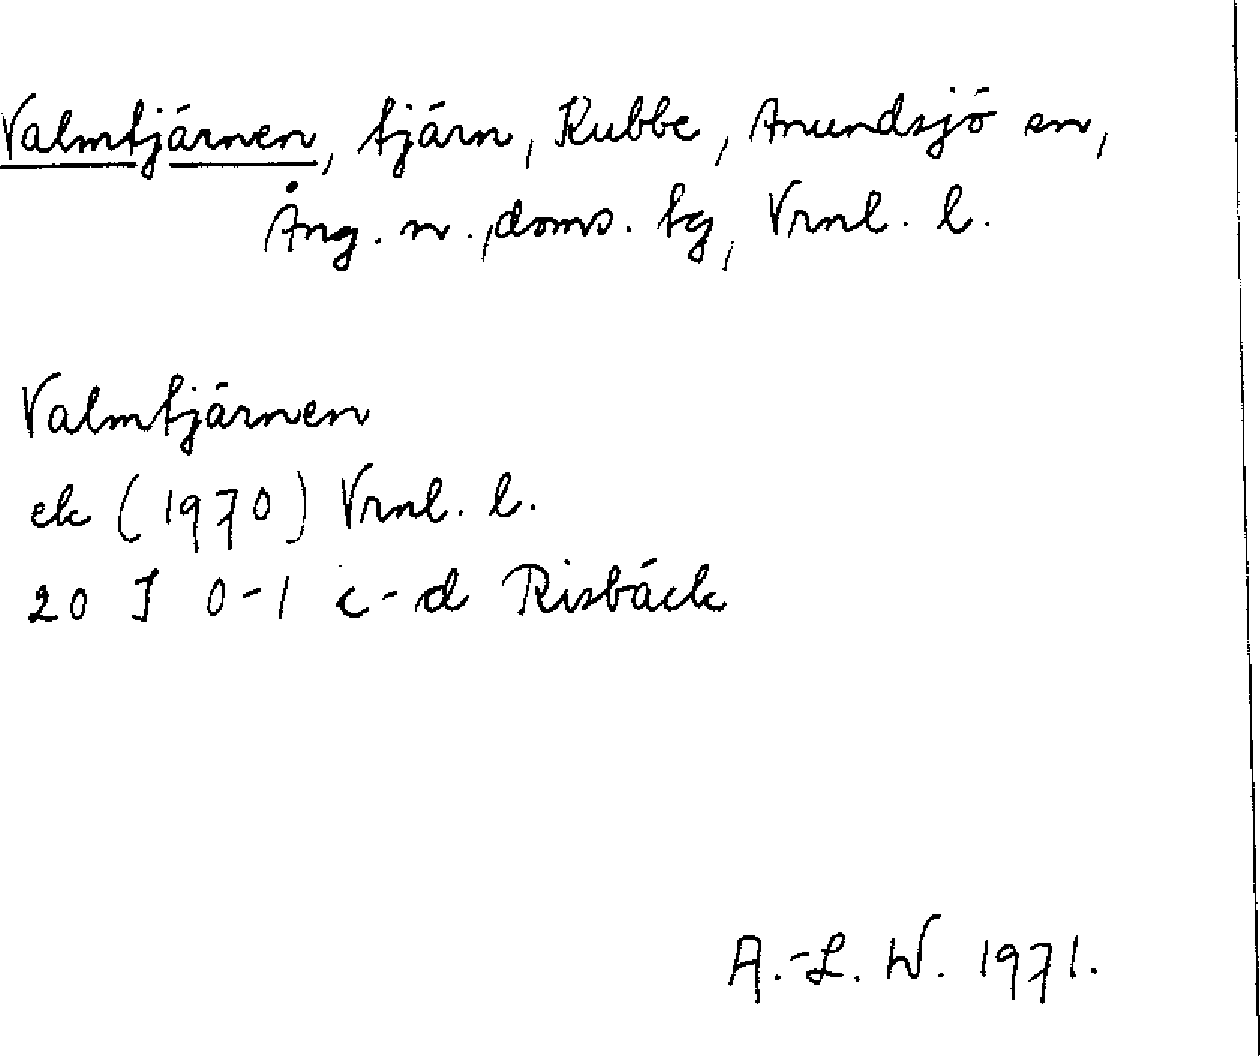 Valmtjärnen, tjärn, Kubbe, Anundsjö sn,
Ång. n., doms. tg, Vrnl. l.
Valmtjärnen
ek (1970) Vrnl. l.
20 J 0-1 c-d Risbäck
A.-L. W. 1971.